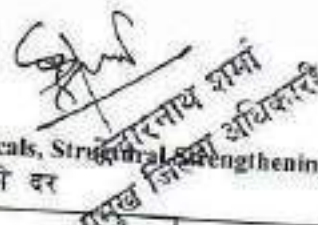 शर्मा
प्रमुख जिल्ला अधिकारी
cals, Structural Strengthenin
दर